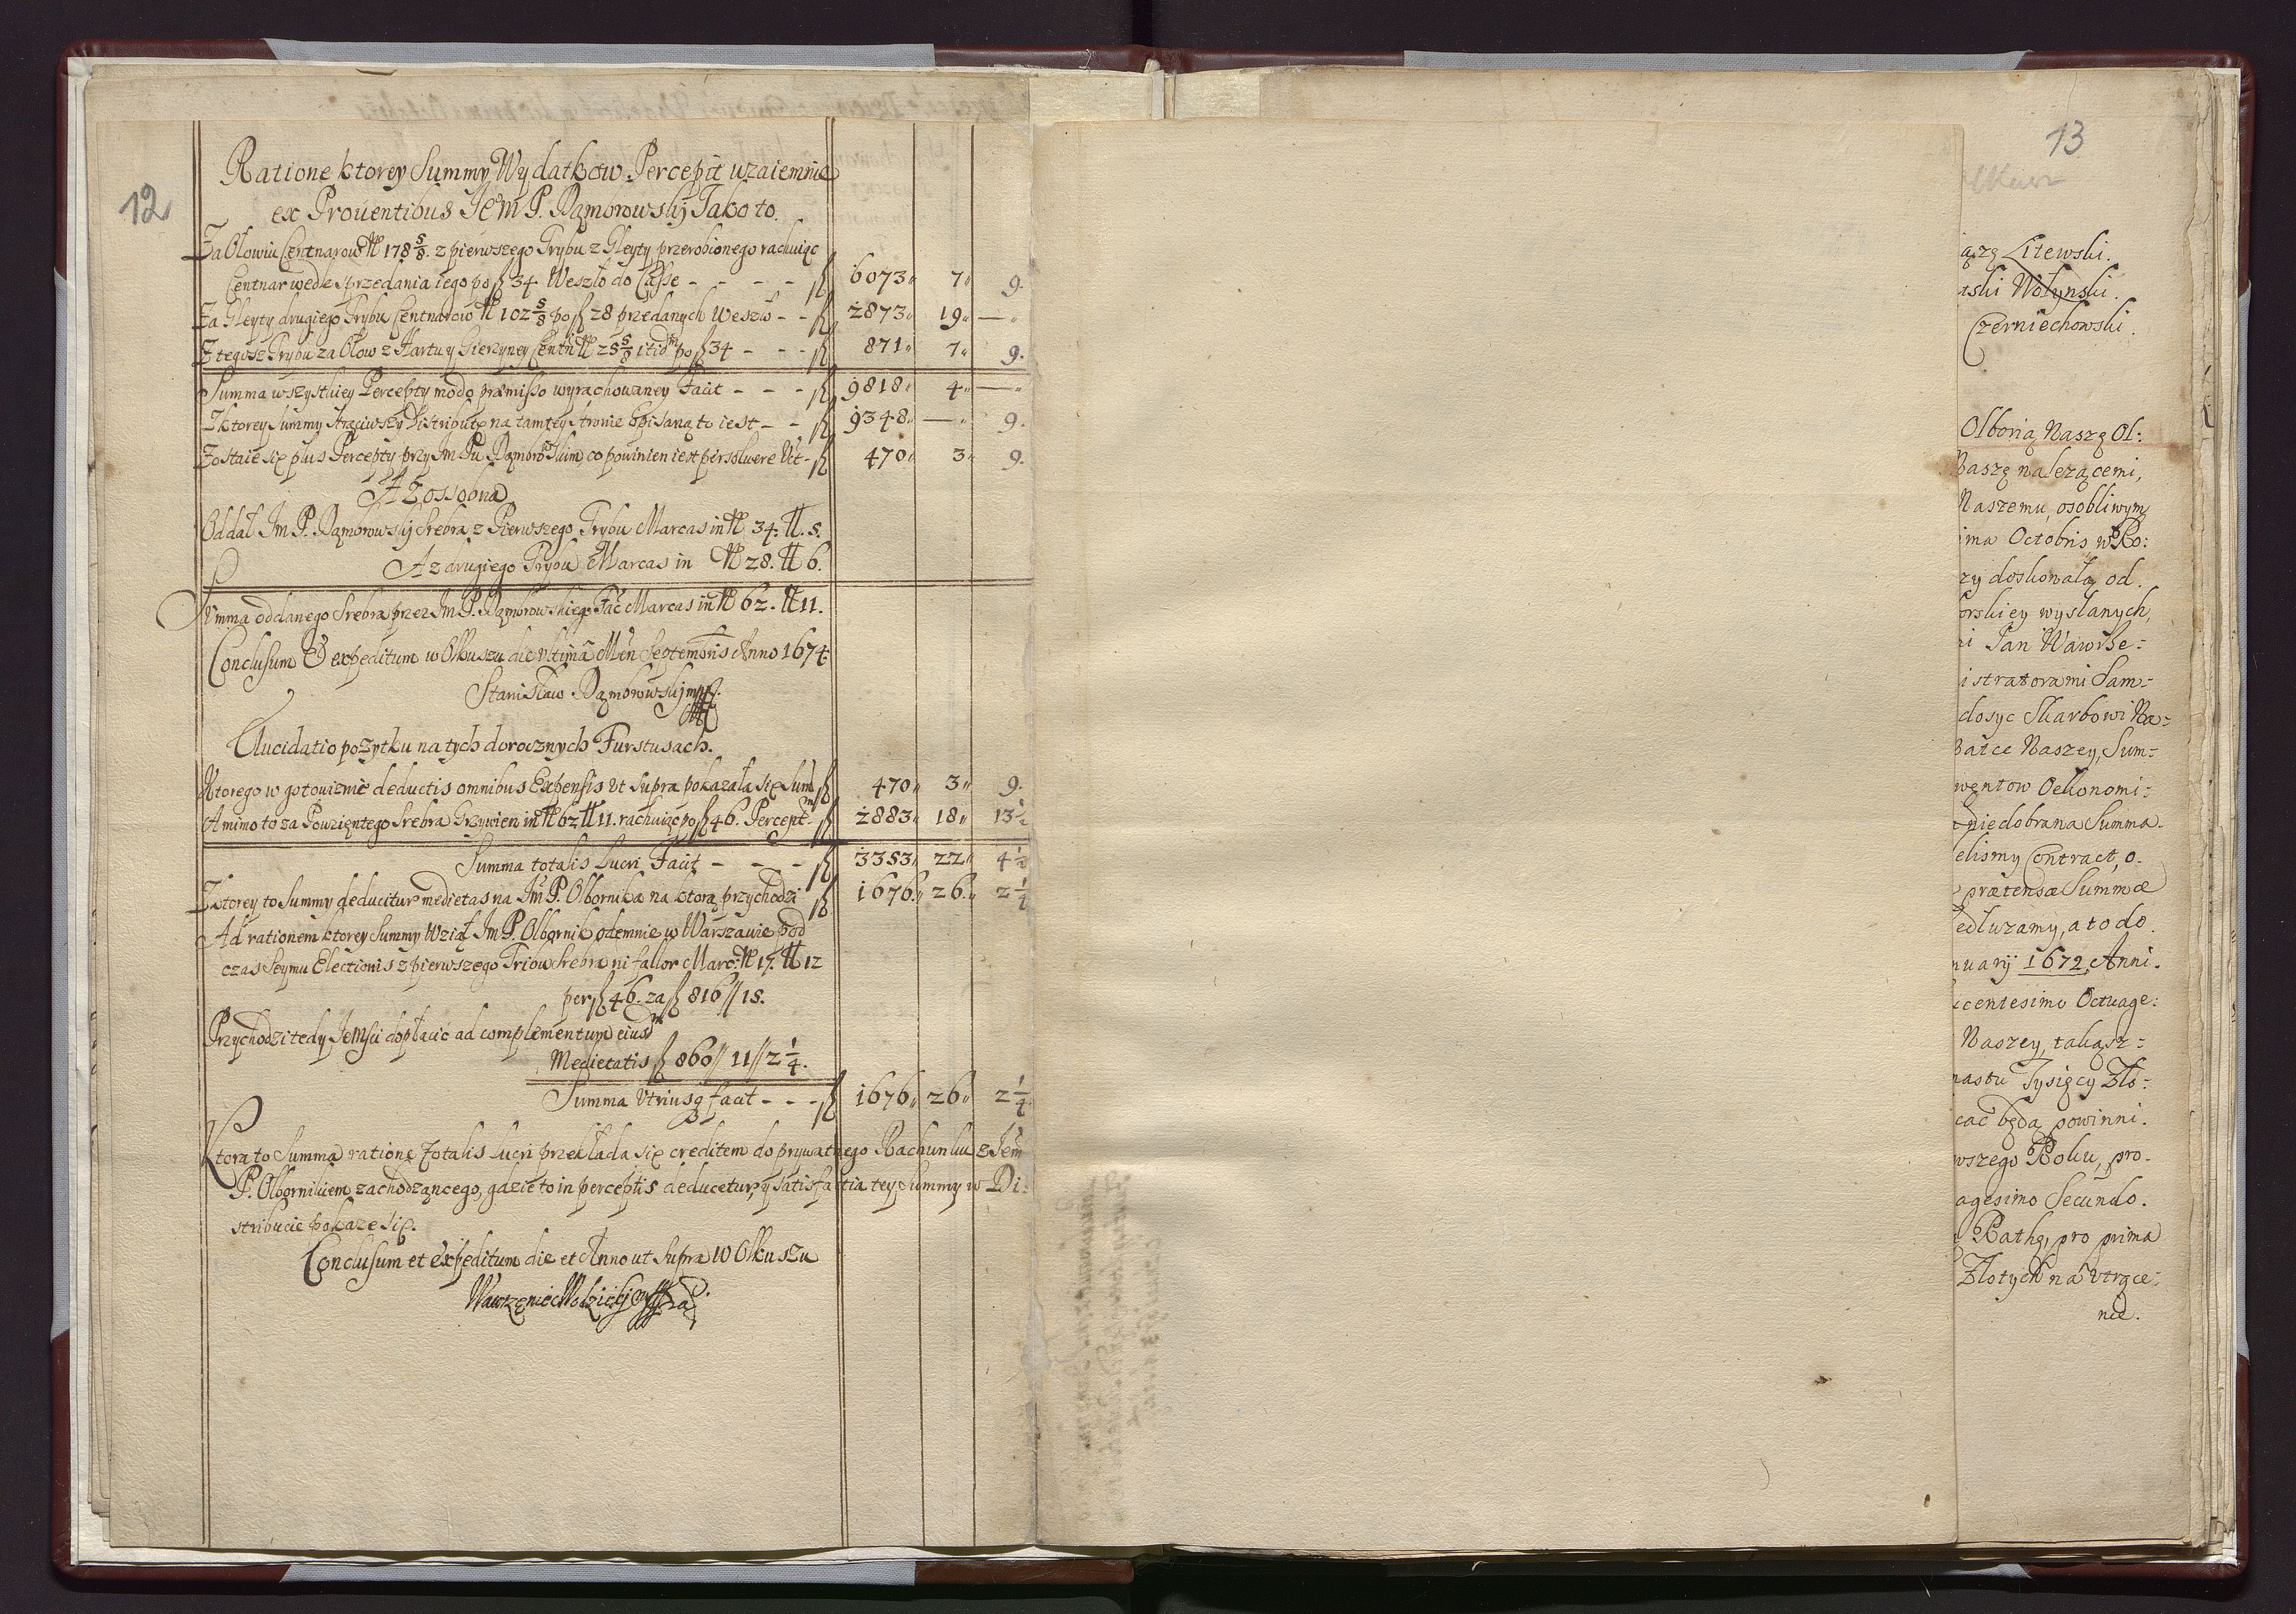 12
Ratione ktorey Summy Wydatkow Percepit wzaiemnie
ex Proventibus JEm P. Dąmbrowskij Jako to.
Za Ołowiu Centnarow № 178 5/8. z pierwszego Trybu z Gleyty przerobionego rachuiąc
Centnar wedle sprzedania iego po fl 34 Weszło do Casse - - - - fl 6073 7 9.
Za Gleyty drugiego Trybu Centnarow № 102 5/8 po fl 28 przedanych Weszło - - fl 2873 19 —
Z tegosz Trybu za Ołow z Hartu y Gierzyney Centn № 25 5/8 itidm po fl 34 - - - fl 871 7 9.
Summa wszystkiey Percepty modo præmisso wyrachowaney Facit - - - fl 9818 4 —
Z ktorey Summy strąciwszy Distributę na tamtey stronie opisaną to iest - - fl 9348 — 9.
Zostaie się plus Percepty przy Im Pu Dąmbro Skim, co powinien iest persolvere Vt - fl 470 3 9.
A Zossobna
Oddał Im P. Dąmbrowskij Srebra z Pierwszego Trybu Marcas in № 34. tt. 5.
A z drugiego Trybu Marcas in № 28. tt 6.
Summa oddanego Srebra przez Im P. Dąmbrowskiego Fac Marcas in № 62. tt 11.
Conclusum & expeditum w Olkuszu die Vltima Men Septembris Anno 1674.
Stanisław Dąmbrowskij mp.
Elucidatio pozytku na tych dorocznych Furstusach.
Ktorego w gotowiznie deductis omnibus Expensis vt supra pokazała się Sum fl 470 3 9.
A mimo to za Powziętego Srebra Grzywien in № 62 tt 11. rachuiąc po fl 46. Percept fl 2883 18 13 1/2
Summa totalis Lucri Facit - - - fl 3353 22 4 1/2
Z ktorey to Summy deducitur medietas na Im P. Olbornika na ktorą przychodzi fl 1676 26 2 1/4
Ad rationem ktorey Summy Wziął Im P. Olbornik odemnie w Warszawie pod
czas Seymu Electionis z pierwszego Tribu Srebra ni fallor Marc: № 17. tt 12
per fl 46. za fl 816 // 15.
Przychodzi tedy Jemsci dopłacić ad complementum eiusdm
Medietatis fl 860 // 11 // 2 1/4.
Summa Vtriusq facit - - - fl 1676 26 2 1/4
Ktora to Summa ratione totalis lucri przekłada się creditem do prywatnego Rachunku z Jem
P. Olbornikiem zachodzącego, gdzie to in perceptis deducetur, y satisfactia tey Summy w Di:
stribucie pokaze się.
Conclusum et expeditum die et Anno ut supra w Olkuszu
Wawrzeniec Wodzickij
13
ązę Litewski.
tski Wołynski.
Czerniechowski.
Olborią Naszą Ol:
Naszę nalezącemi,
Naszemu, osobliwym
ima Octobris w Ro:
zy doskonałą od.
orskiey wysłanych,
ri Jan Wawrze:
istratorami Sam:
dosyc Skarbowi Na:
Batce Naszey, Sum:
wentow Oekonomi:
niedobrana Summa.
elismy Contract, o.
prætensæ Summæ
edłuzamy, a to do.
nuarij 1672, Anni.
centesimo Octuage:
Naszey, takąsz:
nastu Tysięcy Zło:
cać będą powinni.
wszego Roku, pro.
agesimo Secundo.
Rathę, pro prima
Złotych na Vtrące:
nie.